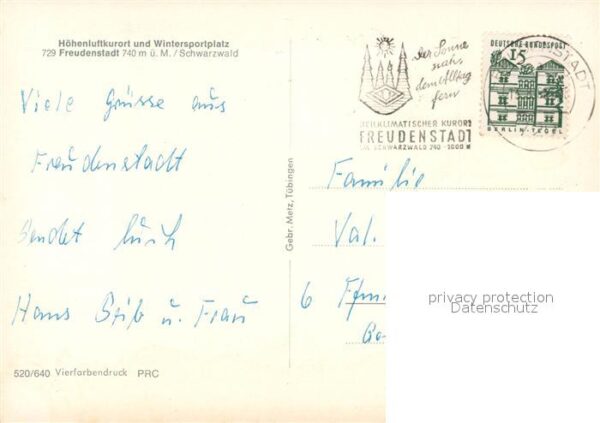 Höhenluftkurort und Wintersportplatz
729 Freudenstadt 740 m ü. M. / Schwarzwald
Viele Grüsse aus
Freudenstadt
Sendet Euch
Hans Seib u. Frau
520/640 Vierfarbendruck PRC
Gebr. Metz, Tübingen
der Sonne
nah
dem Alltag
fern
HEILKLIMATISCHER KURORT
FREUDENSTADT
IM SCHWARZWALD 740 - 1000 M
DEUTSCHE BUNDESPOST
15
BERLIN-TEGEL
Familie
Val.
6
privacy protection
Datenschutz